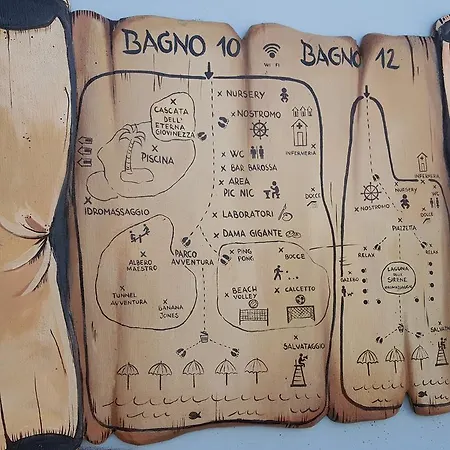 BAGNO 10
WI FI
BAGNO 12
NURSERY
CASCATA
DELL'
ETERNA
GIOVINEZZA
NOSTROMO
INFERMERIA
PISCINA
WC
BAR BAROSSA
AREA
PIC NIC
DOCCE
IDROMASSAGGIO
LABORATORI
DAMA GIGANTE
ALBERO
MAESTRO
PARCO
AVVENTURA
PING
PONG
BOCCE
TUNNEL
AVVENTURA
BANANA
JONES
BEACH
VOLLEY
CALCETTO
SALVATAGGIO
INFERMERIA
NURSERY
WC
NOSTROMO
DOCCE
PIAZZETTA
RELAX
RELAX
GAZEBO
LAGUNA
DELLE
SIRENE